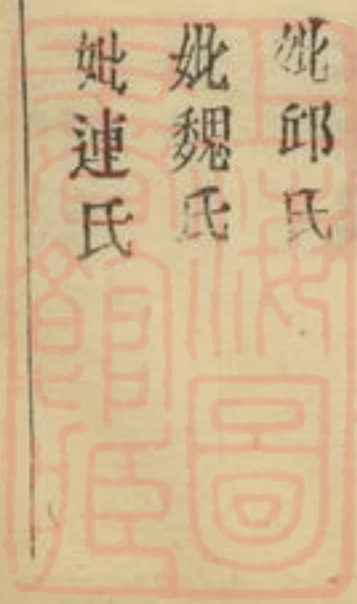 妣邱氏
妣魏氏
妣連氏